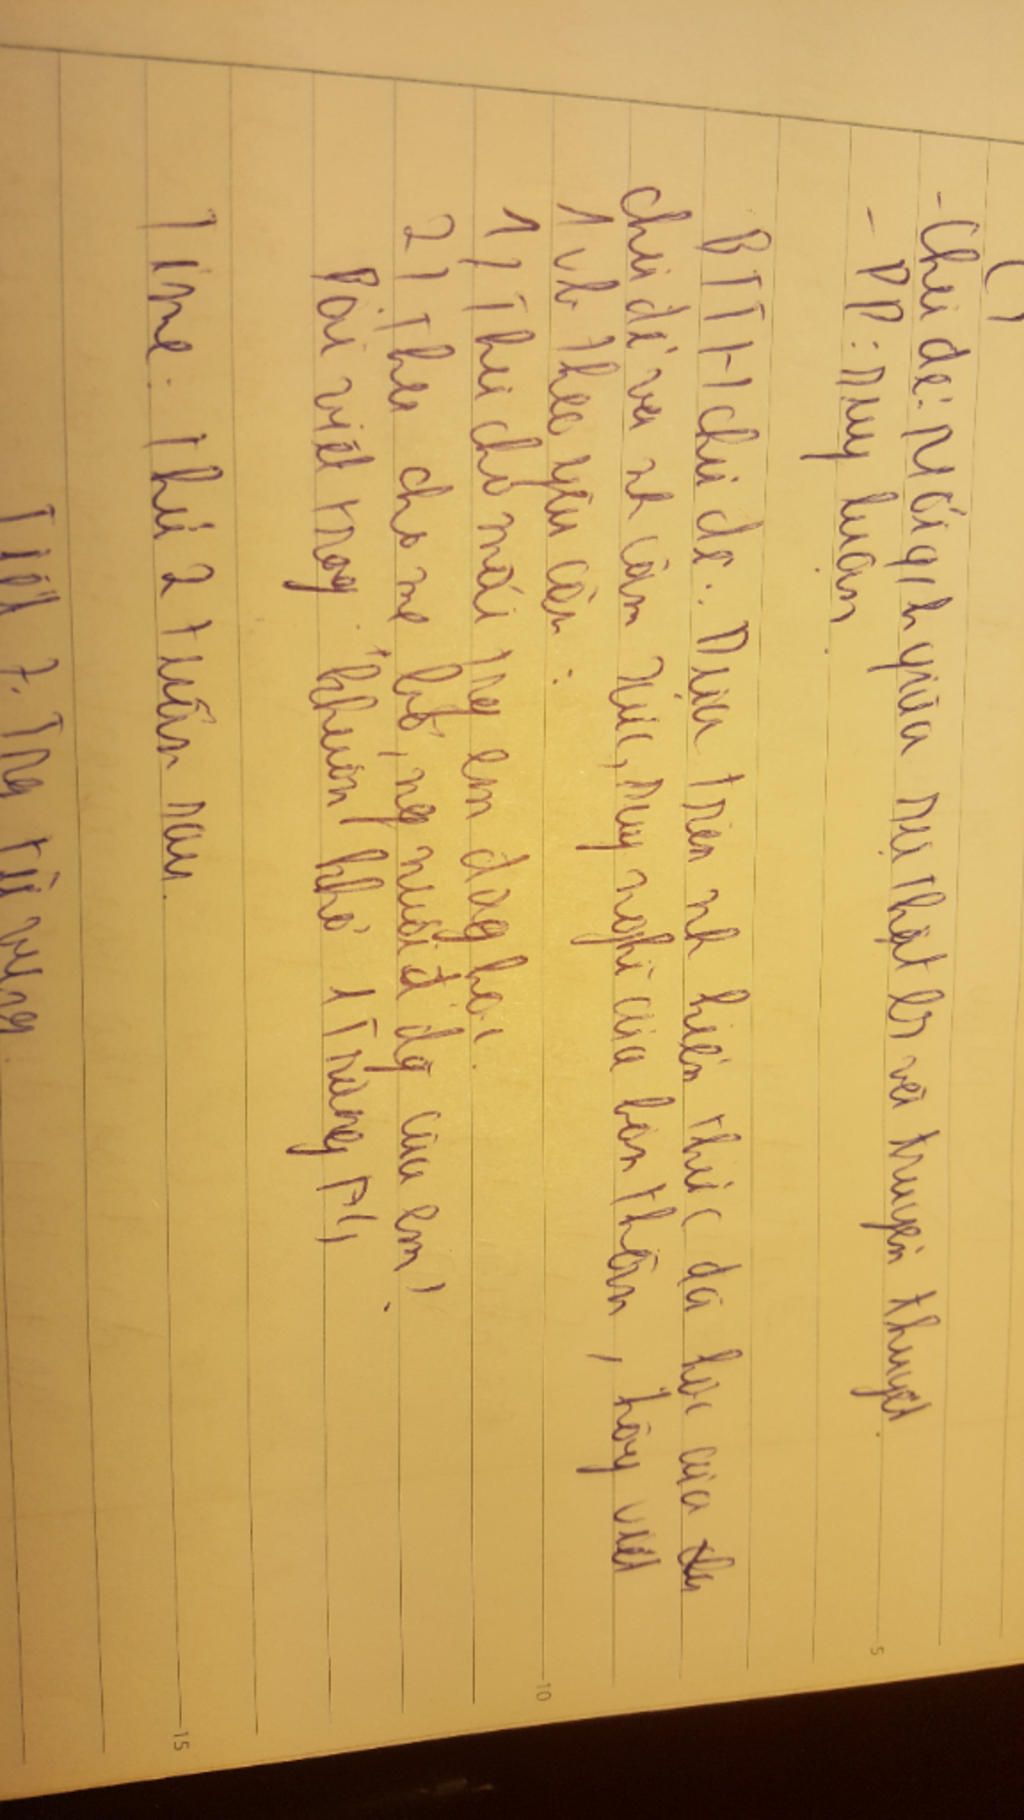 - Chủ đề: Mối q/h giữa sự thật ls và truyền thuyết.
- PP: suy luận
BTTH chủ đề: Dựa trên nh kiến thức đã học của
chủ đề và nh cảm xúc, suy nghĩ của bản thân, hãy viết
1 vb theo yêu cầu:
1) Thư cho mái trg em đag học.
2) Thư cho mẹ, bố, ng nuôi d dg của em.
Bài viết trog khuôn khổ 1 trang A4
Time: Thứ 2 tuần sau.
Tiết 7: Trg từ vựng
5
10
15